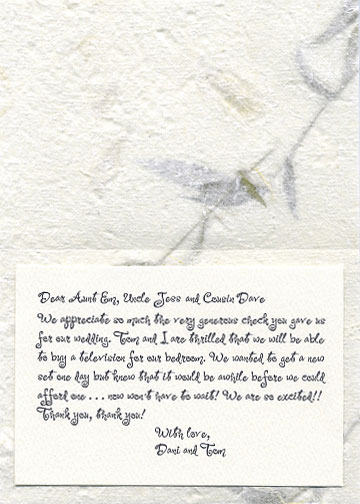 Dear Aunt Em, Uncle Jess and Cousin Dave
We appreciate so much the very generous check you gave us
for our wedding. Tom and I are thrilled that we will be able
to buy a television for our bedroom. We wanted to get a new
set one day but knew that it would be awhile before we could
afford one . . . now won't have to wait! We are so excited!!
Thank you, thank you!
With love,
Dani and Tom